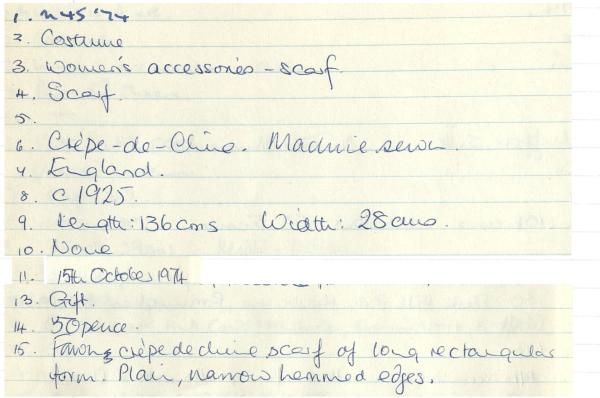 1. M45'74
2. Costume
3. Women's accessories - scarf.
4. Scarf.
5.
6. Crêpe-de-Chine. Machine sewn.
7. England.
8. C 1925.
9. Length: 136 cms Width: 28 cms.
10. None
11. 15th October 1974
13. Gift.
14. 50 pence.
15. crêpe de chine scarf of long rectangular
form. Plain, narrow hemmed edges.